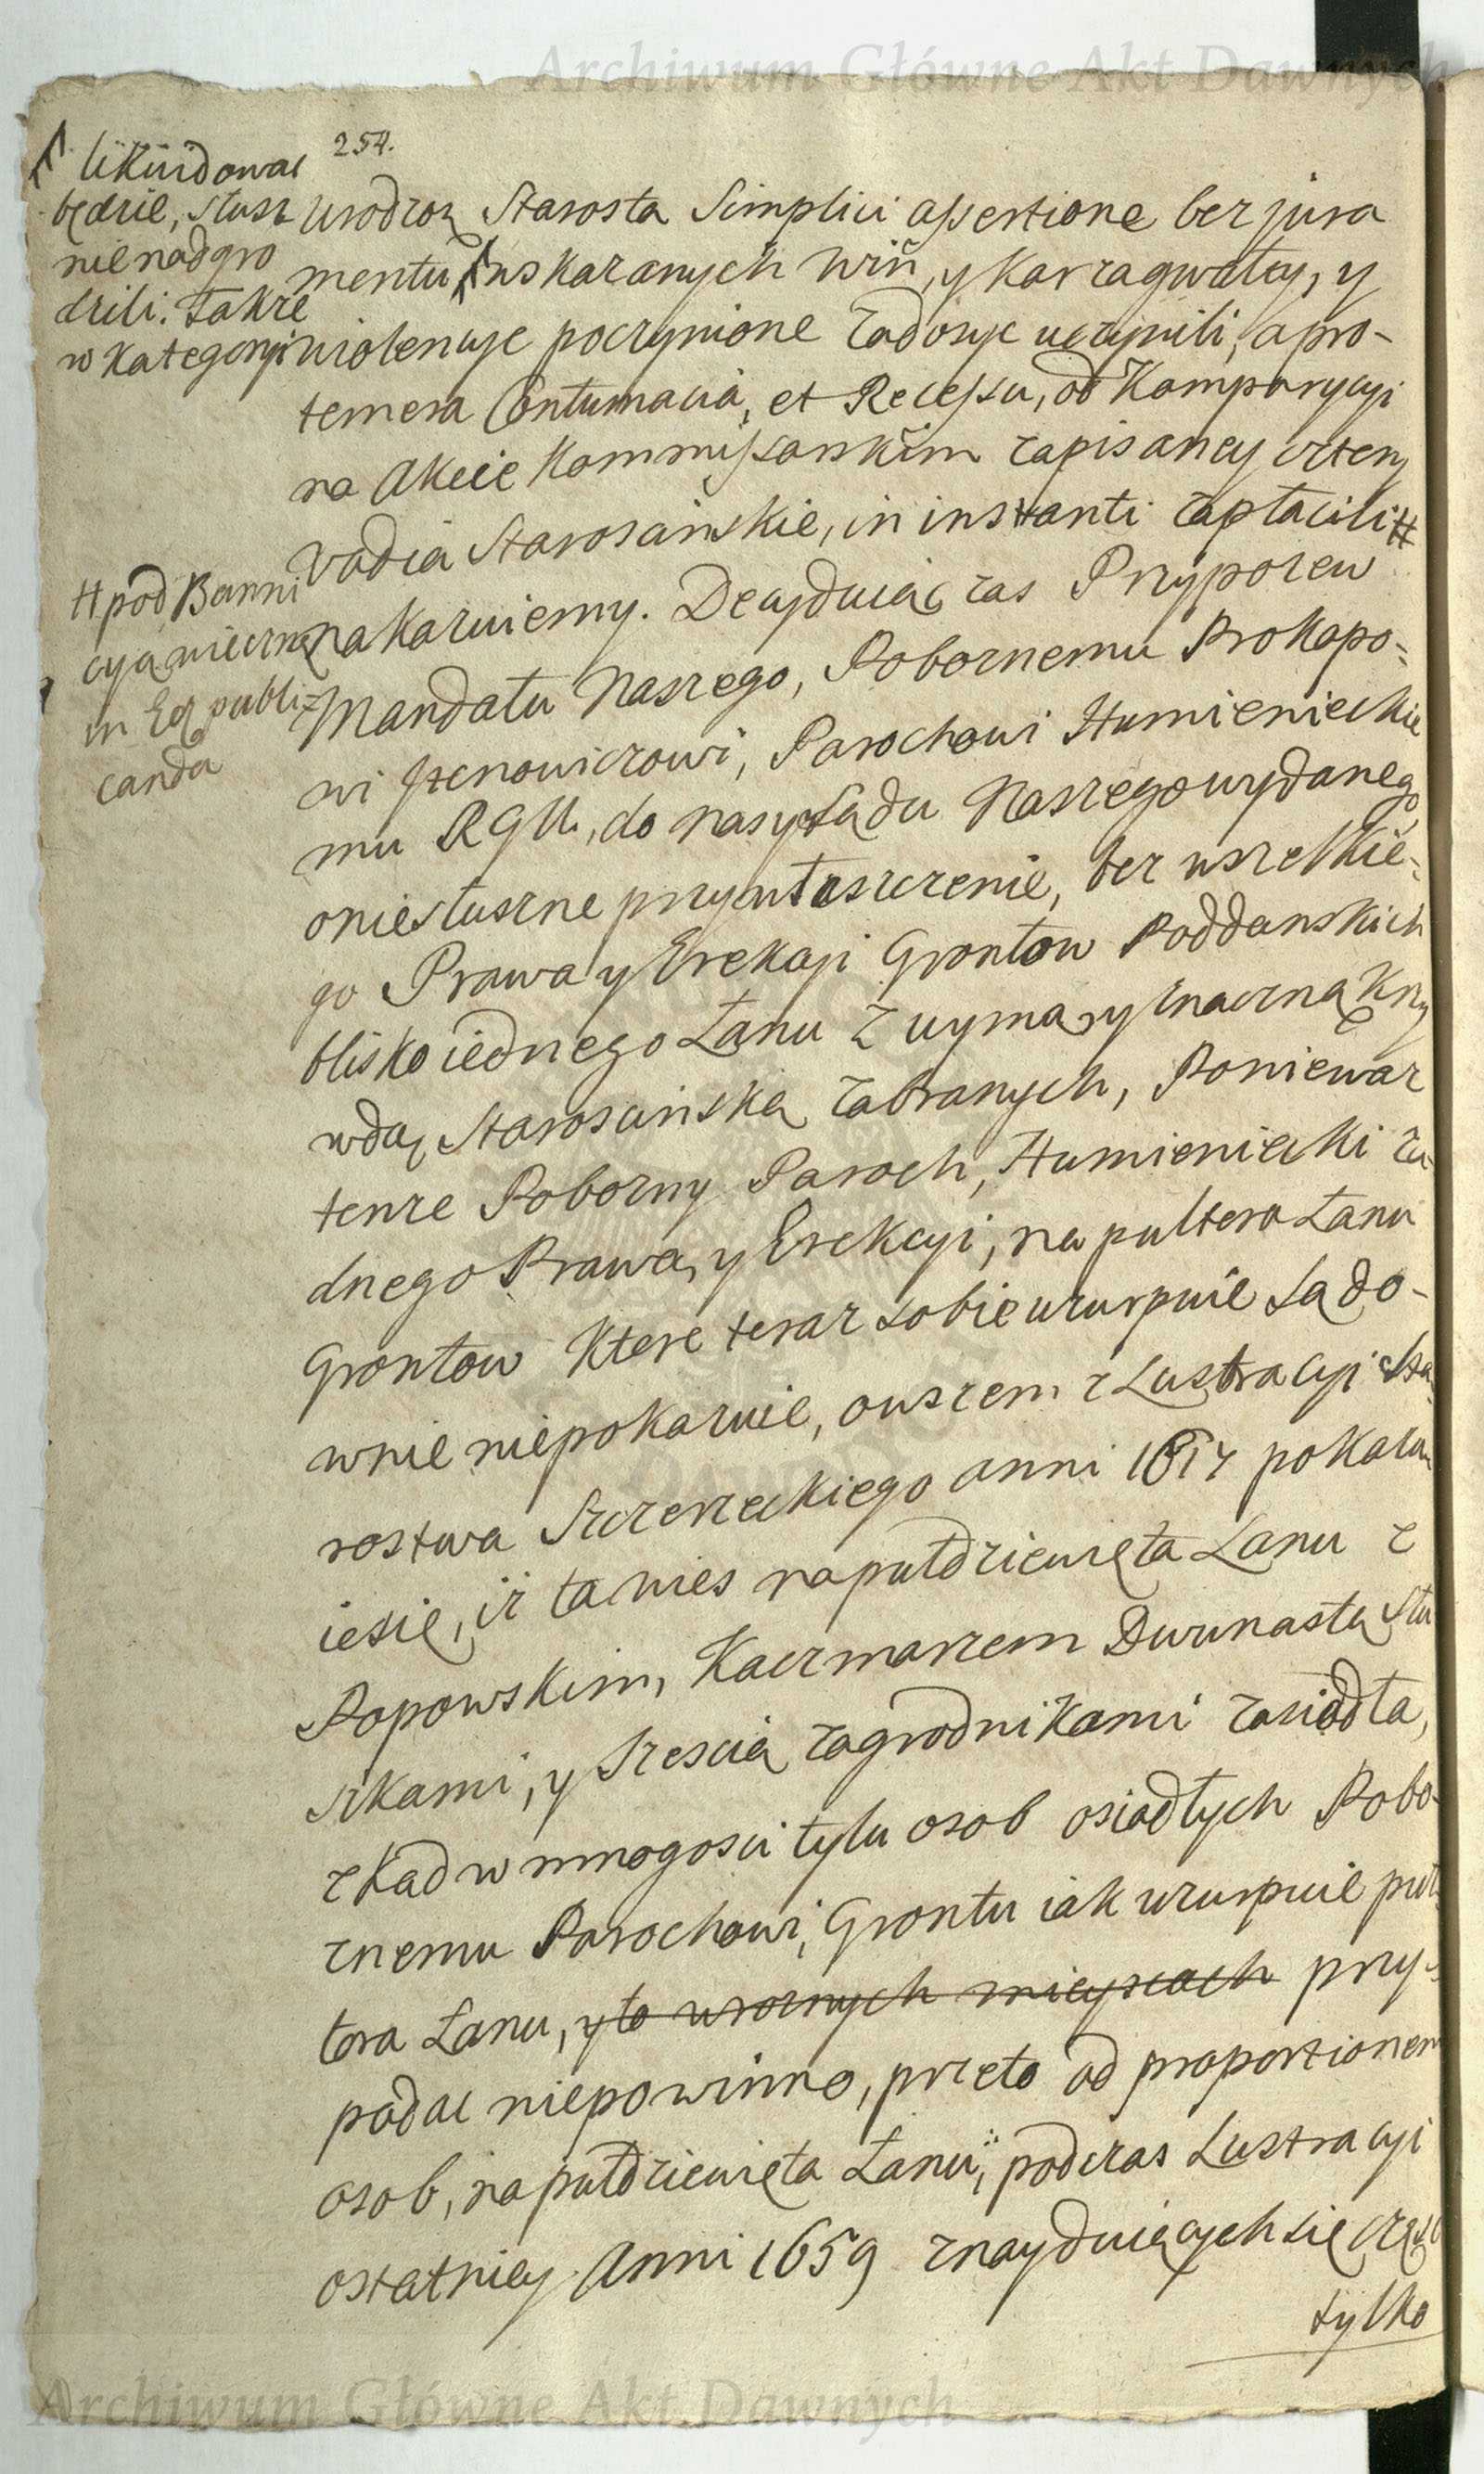 Archiwum Główne Akt Dawnych
254.
likuidowac
będzie, słusz
nie nadgro
dzili. także
w kategoryi
Urodzon Starosta Simplici assertione bez jura
mentu wskazanych Win, y Kar za gwałty, y
wiolencye poczynione zadosyc uczynili, a pro-
temera Contumacia, et Recessu, od Komparycyi
na Akcie Kommissarskim zapisaney cztery
vadia Staroscinskie, in instanti zapłacili #
# pod Banni
cyą wieczną
in Eq publi-
canda
nakazuiemy. Decyduiąc zas Przypozew
Mandatu Naszego, Pobornemu Prokopo-
wi Ilenowiczowi, Parochowi Humienieckie
mu RGU., do nas y Sądu Naszego wydanego
o niesłuszne przywłaszczenie, bez wszelkie-
go Prawa y Erekcyi Grontow Poddanskich
blisko iednego Łanu z uymą y znaczną Krzy
wdą Staroscinską zabranych, Poniewaz
tenze Poborny Paroch, Humieniecki za
dnego Prawa, y Erekcyi, na pułtora Łanu
Grontow Ktore teraz sobie uzurpuie Sądo-
wnie niepokazuie, owszem z Lustracyi Sta
rostwa Szczerzeckiego anni 1614 pokazu
ie się, iż ta wies na pułdziewięta Łanu z
Popowskim, Kaczmarzem Dwunastą Słu
zkami, y Szescią zagrodnikami zasiadła,
zkad w mnogosci tylu osob osiadłych Pobo-
znemu Parochowi, Grontu iak uzurpuie puł
tora Łanu, y to w roznych mieyscach przy-
padac niepowinno, przeto ad proportionem
osob, na pułdziewięta Łanu, podczas Lustracyi
ostatniey Anni 1659 znayduiących się częsc
tylko
Archiwum Główne Akt Dawnych